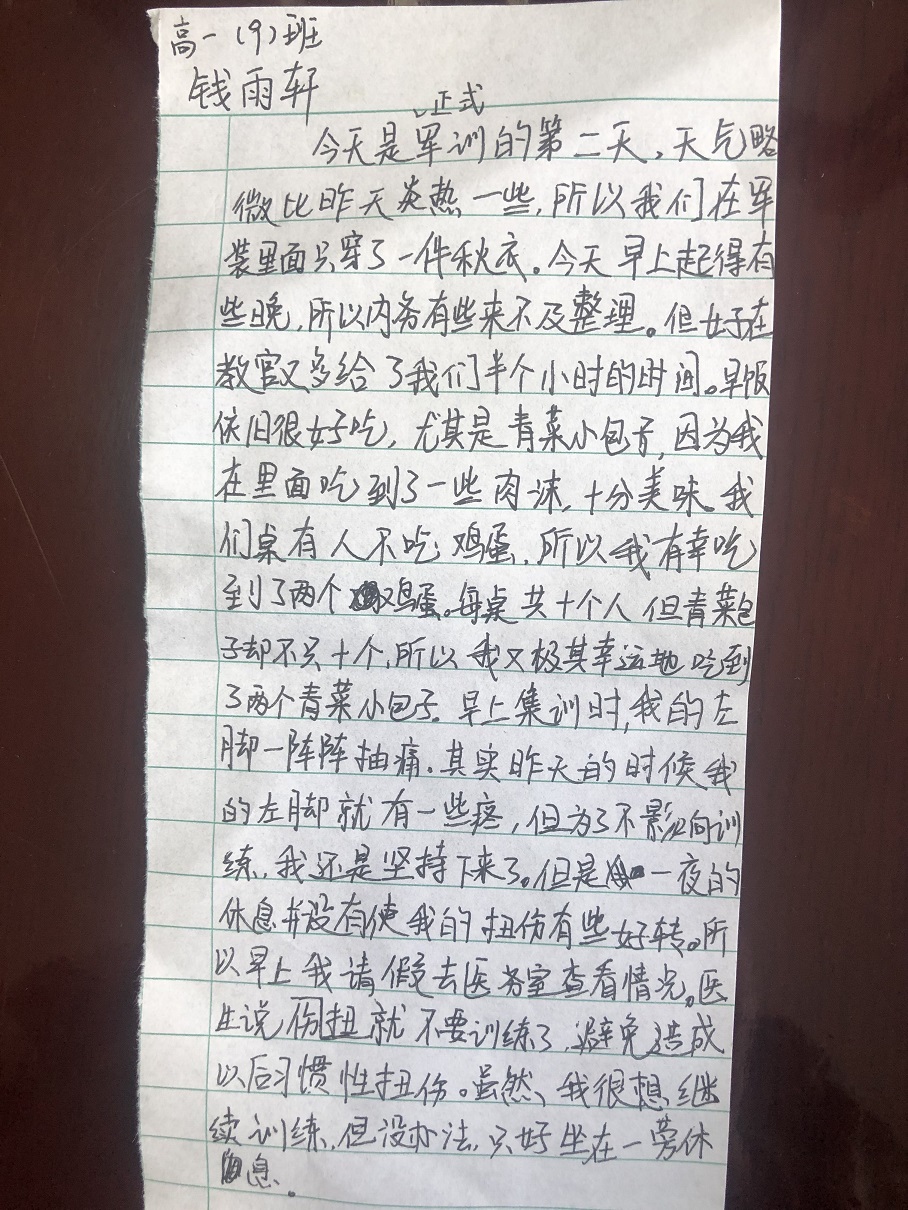 高一（9）班
钱雨轩
正式
今天是军训的第二天，天气略
微比昨天炎热一些，所以我们在军
装里面只穿了一件秋衣。今天早上起得有
些晚，所以内务有些来不及整理。但好在
教官又多给了我们半个小时的时间。早饭
依旧很好吃，尤其是青菜小包子，因为我
在里面吃到了一些肉沫，十分美味。我
们桌有人不吃鸡蛋，所以我有幸吃
到了两个鸡蛋。每桌共十个人但青菜包
子却不只十个，所以我又极其幸运地吃到
了两个青菜小包子。早上集训时，我的左
脚一阵阵抽痛。其实昨天的时候我
的左脚就有一些疼，但为了不影响训
练，我还是坚持下来了。但是一夜的
休息并没有使我的扭伤有些好转。所
以早上我请假去医务室查看情况。医
生说伤扭就不要训练了，避免造成
以后习惯性扭伤。虽然，我很想继
续训练，但没办法，只好坐在一旁休
息。